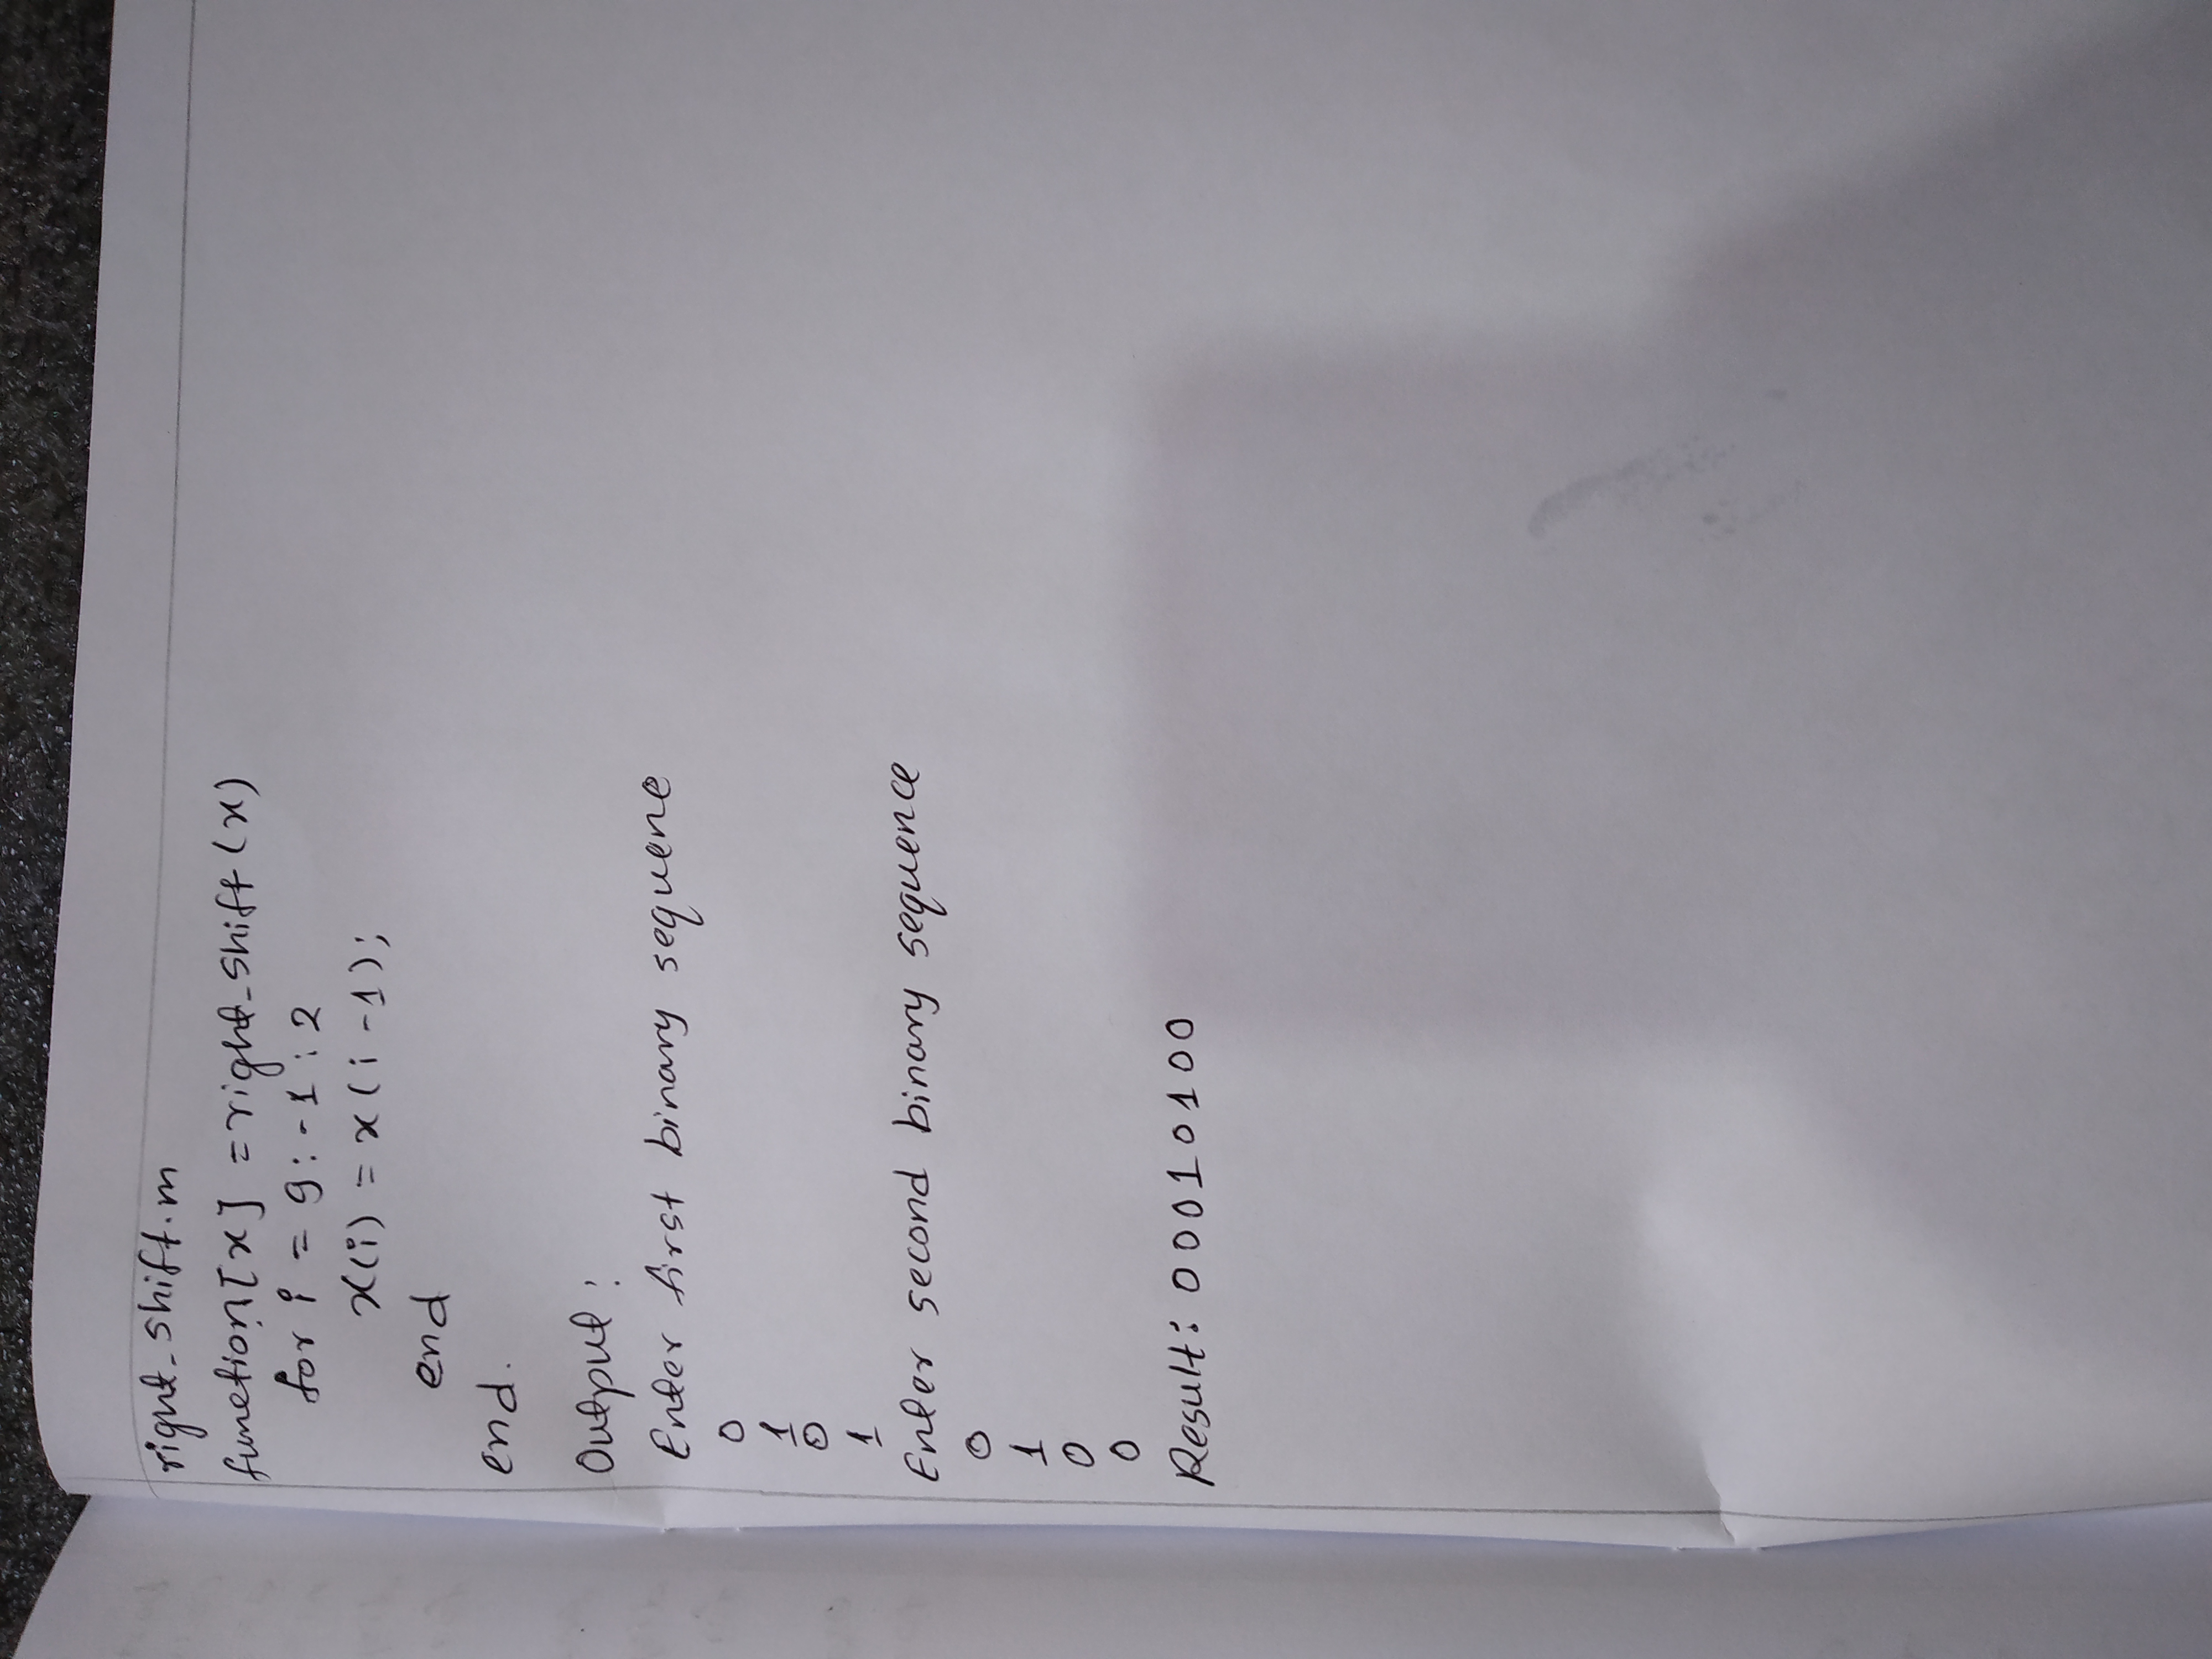 right_shift.m
function[x] = right_shift(x)
for i = 9:-1:2
x(i) = x(i-1);
end
end.
Output:
Enter first binary sequene
0
1
0
1
Enter second binary sequence
0
1
0
0
Result: 00010100